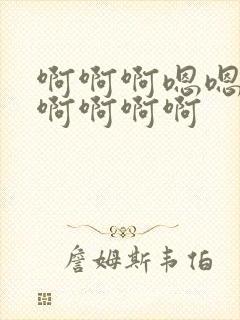 啊啊啊嗯嗯
啊啊啊啊
詹姆斯韦伯